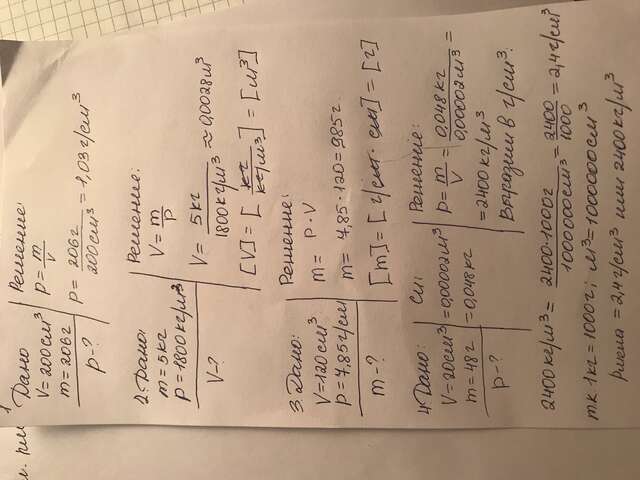 1
Дано
V=200см³
m=206г
ρ-?
Решение:
ρ=m/V
ρ=206г/200см³=1,03г/см³
2. Дано:
m=5кг
ρ=1800кг/м³
V-?
Решение:
V=m/ρ
V=5кг/1800кг/м³≈0,0028м³
[V]=[кг/кг/м³]=[м³]
3 Дано:
V=120см³
ρ=7,85г/см
m-?
Решение:
m=ρ·V
m=7,85·120=985г.
[m]=[г/смт·см]=[г]
4. Дано:
V=20см³
m=48г
ρ-?
СИ:
=0,00002м³
=0,048кг
Решение:
ρ=m/V=0,048кг/0,00002м³=
=2400кг/м³
Выразим в г/см³:
2400кг/м³=2400·1000г/1000000см³=2400/1000=2,4г/см³
тк 1кг=1000г; м³=1000000см³
=2,4г/см³ или 2400кг/м³